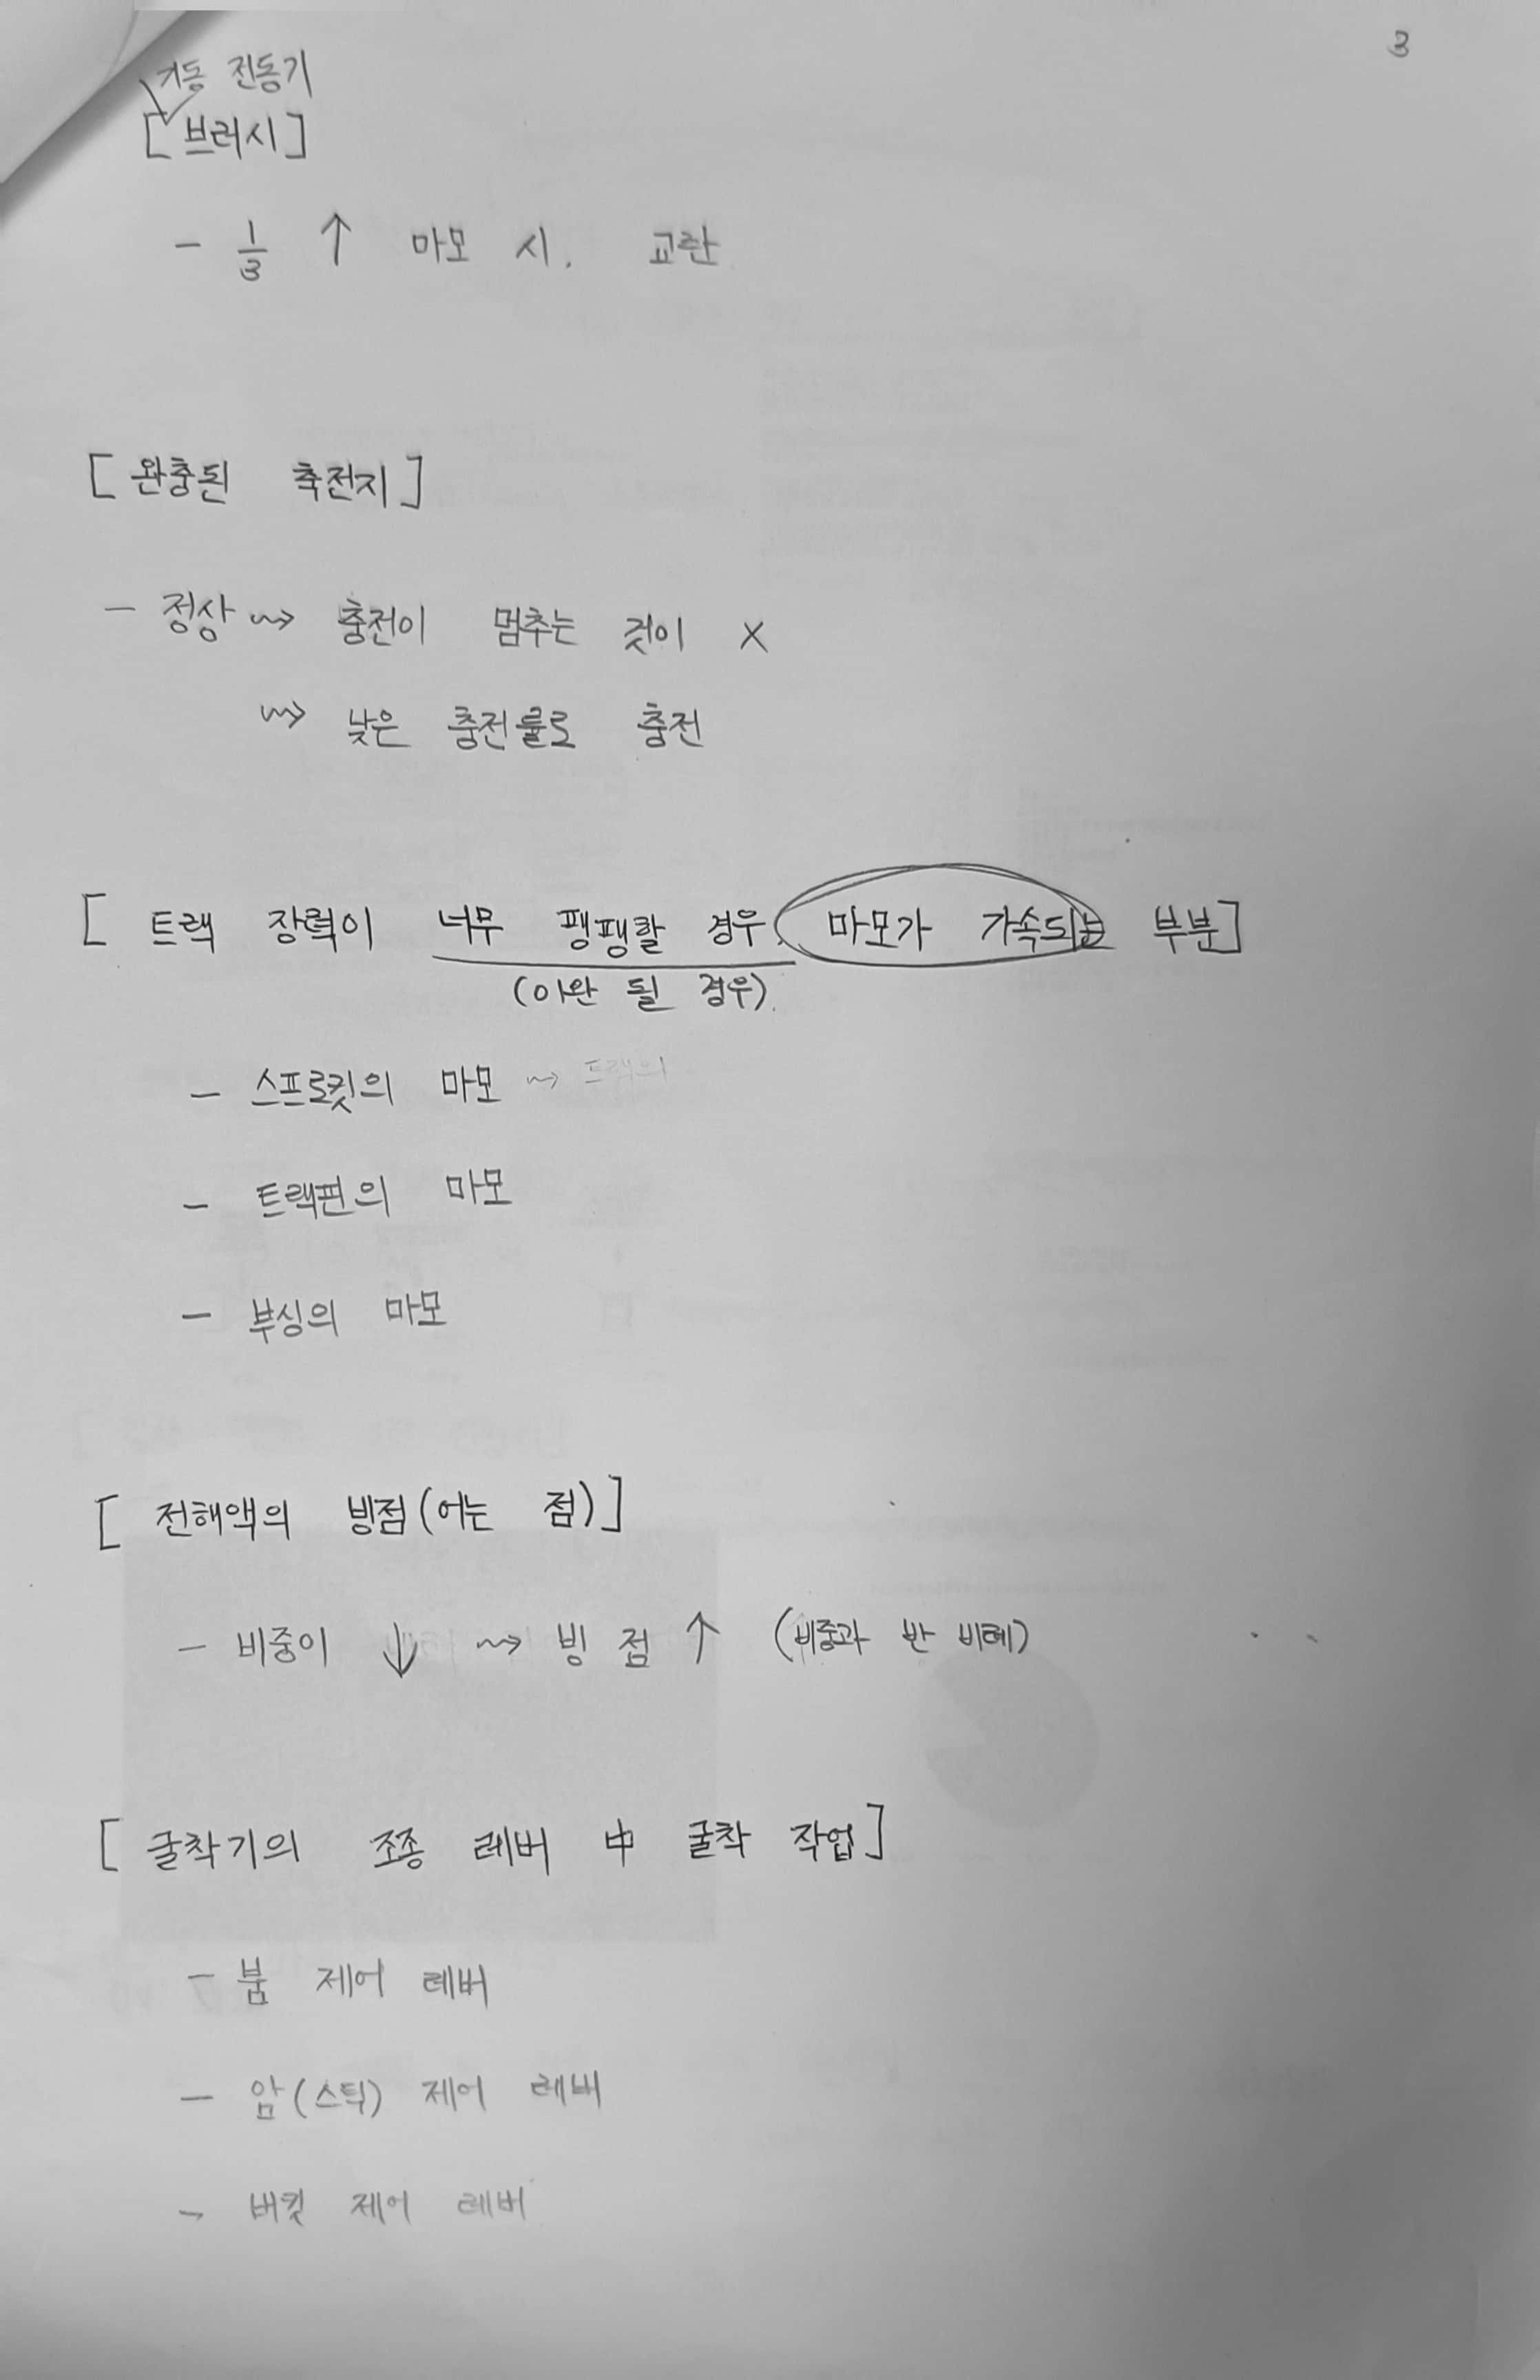 3
기동 전동기
[브러시]
- 1/3 ↑ 마모 시. 교환
[완충된 축전지]
- 정상 ⇝ 충전이 멈추는 것이 X
⇝ 낮은 충전률로 충전
[트랙 장력이 너무 팽팽할 경우. 마모가 가속되는 부분]
(이완 될 경우).
- 스프로킷의 마모 ⇝ 트랙의
- 트랙핀의 마모
- 부싱의 마모
[전해액의 빙점(어는 점)]
- 비중이 ↓ ⇝ 빙점 ↑ (비중과 반 비례)
[굴착기의 조종 레버 中 굴착 작업]
- 붐 제어 레버
- 암(스틱) 제어 레버
- 버킷 제어 레버